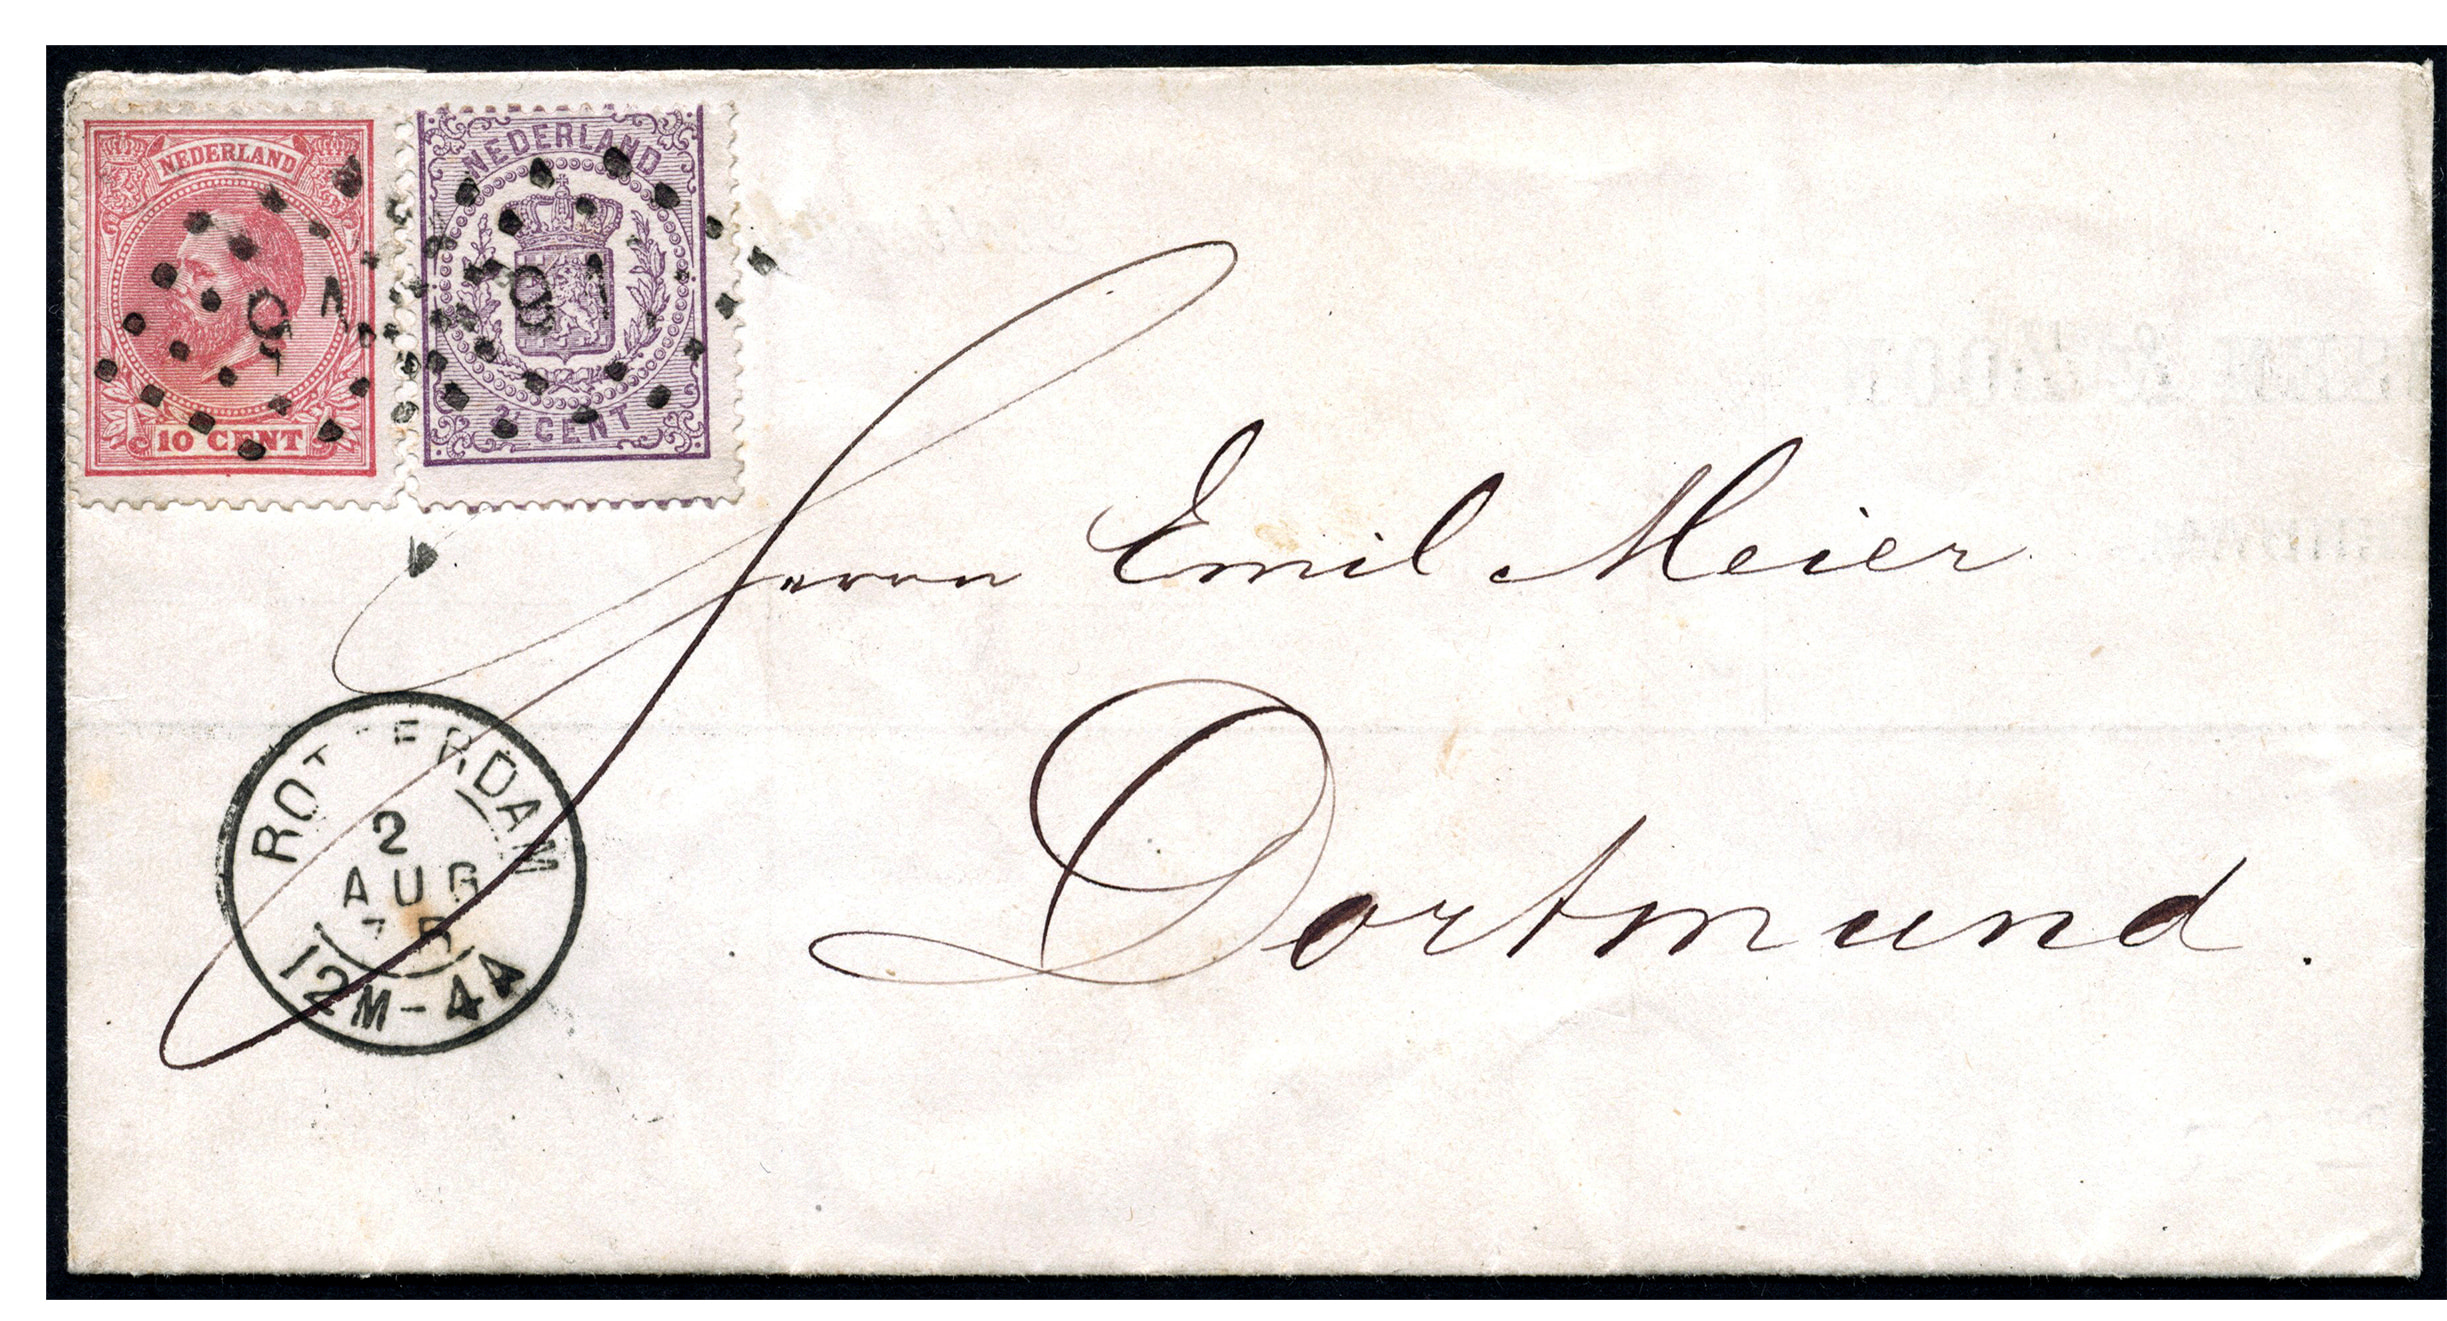 NEDERLAND
10 CENT
NEDERLAND
2½ CENT
91
91
Herrn Emil Meier
Dortmund.
ROTTERDAM
2
AUG
75
12M-4A